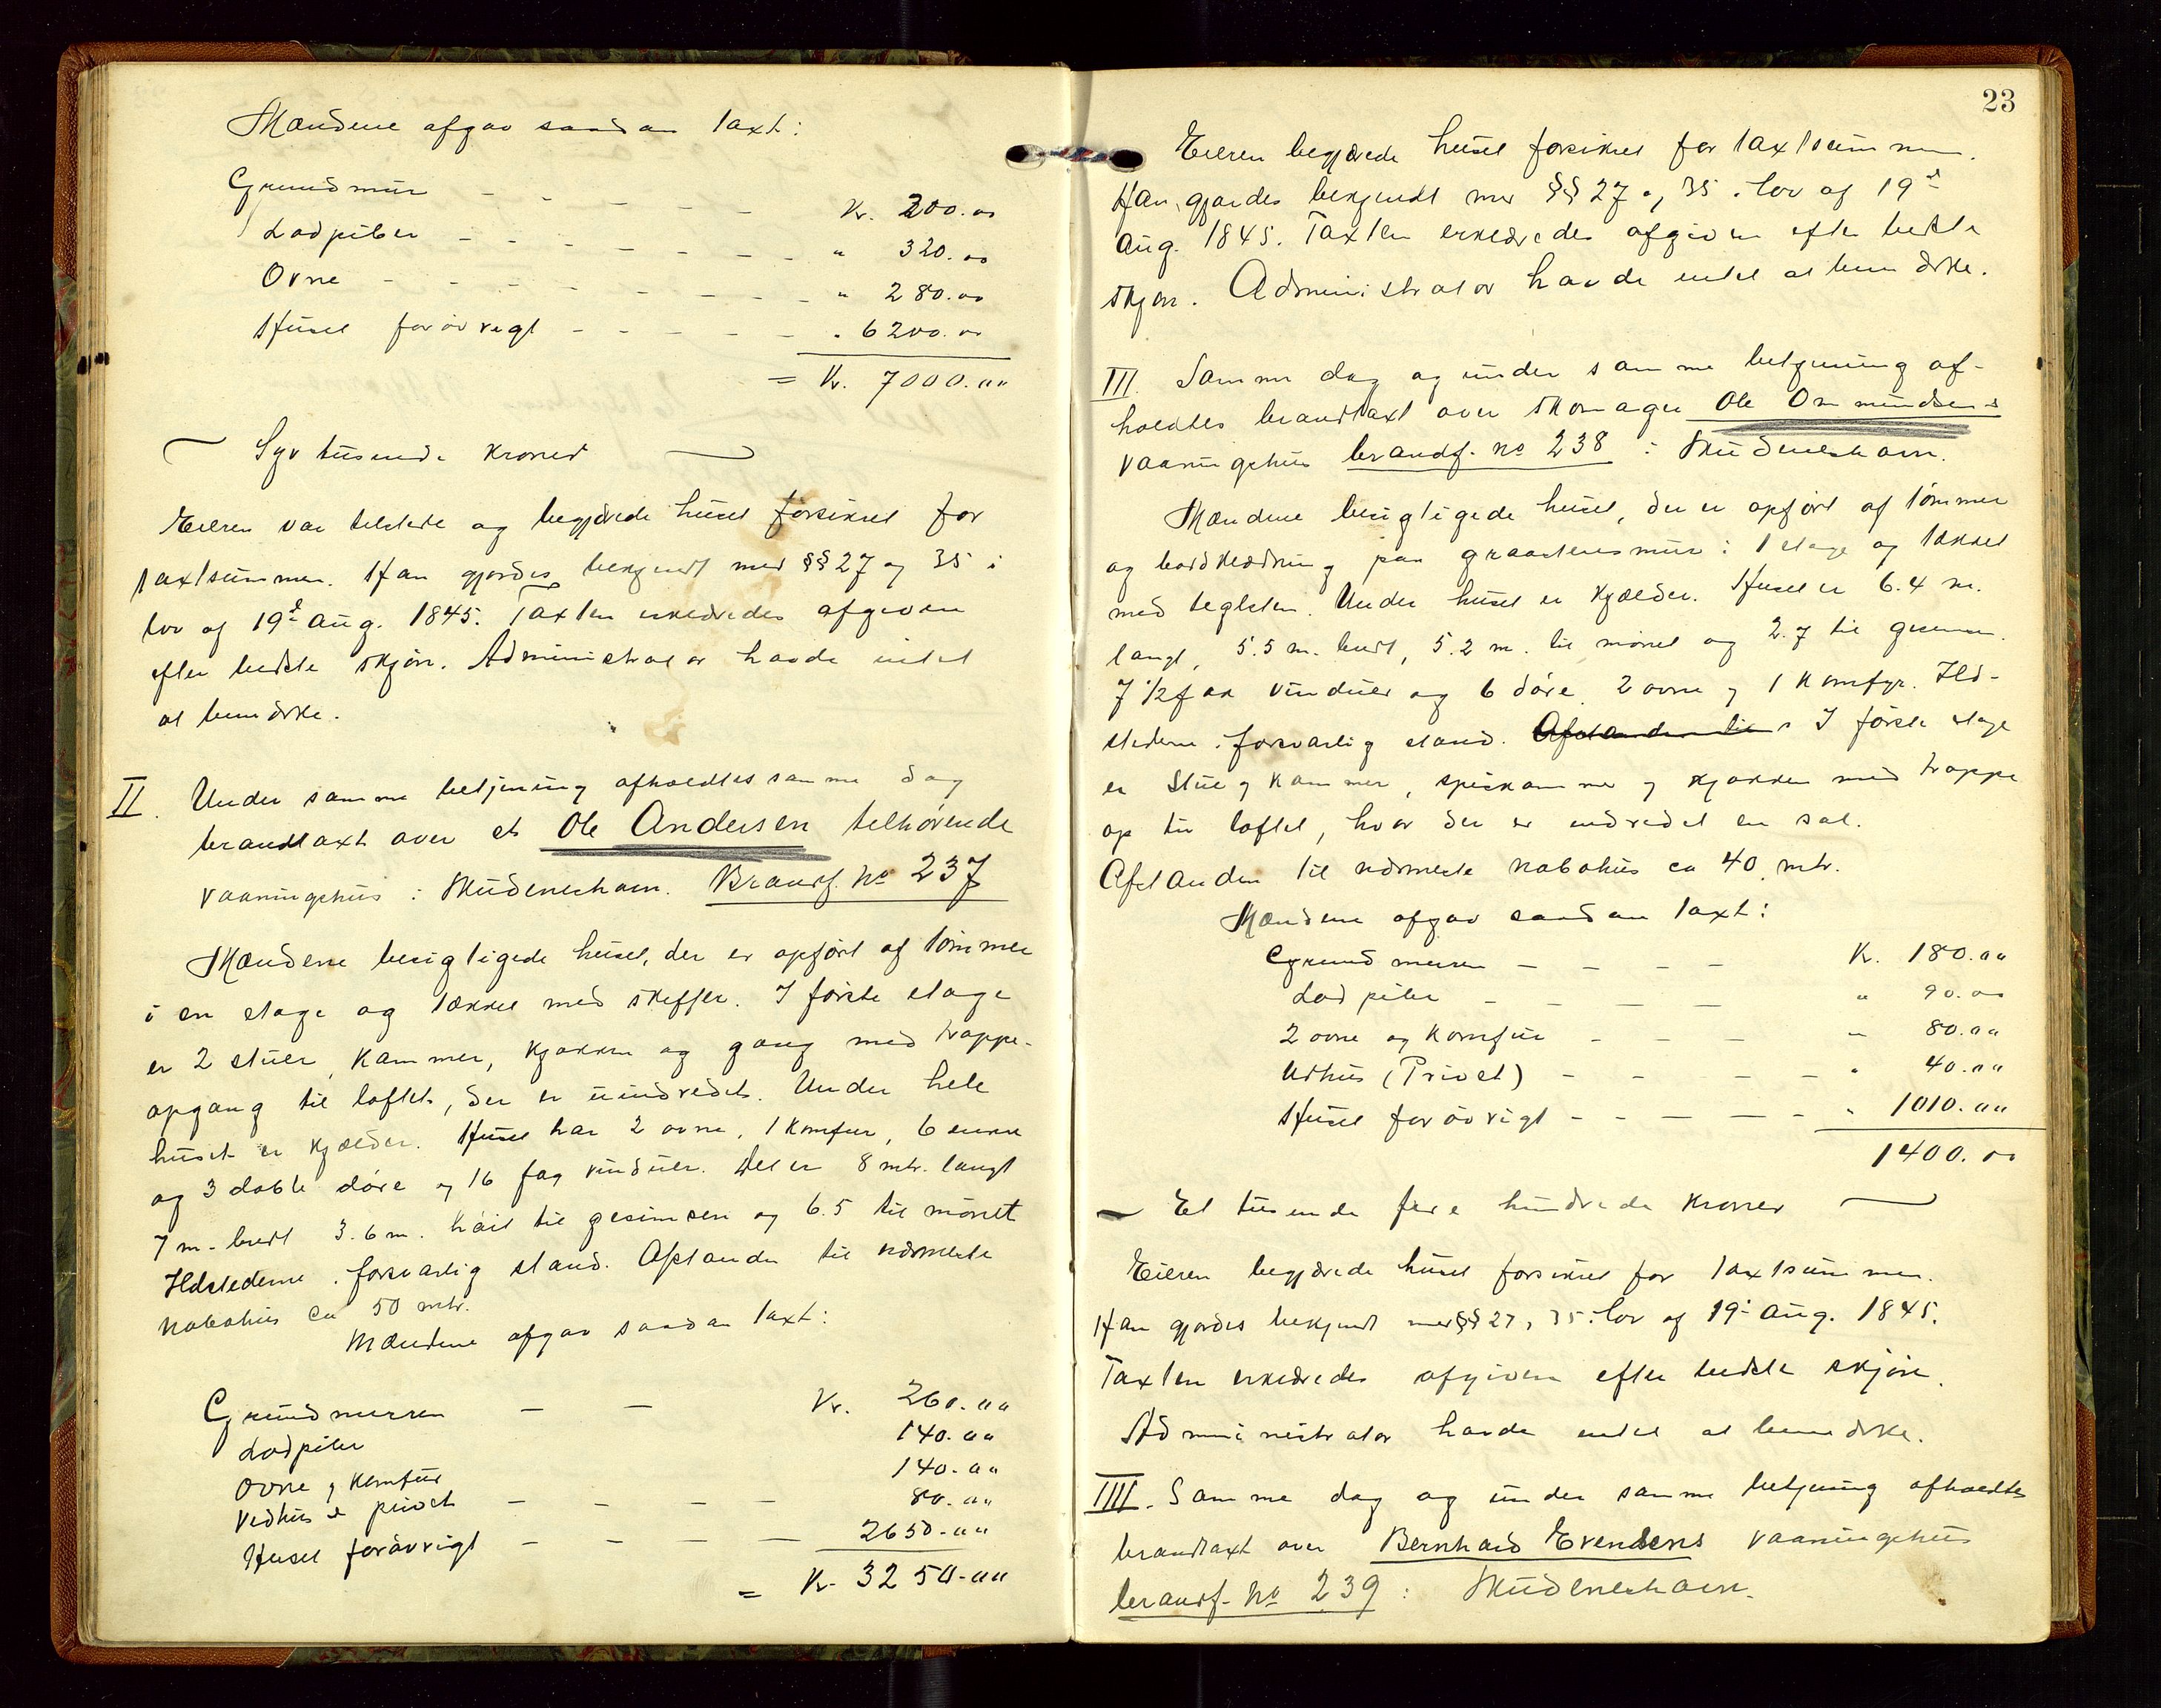 Mændene afgav saadan taxt:
Grundmur - - - - - - Kr. 200.00
Ladpiber - - - - - - - " 320.00
Ovne - - - - - - - - " 280.00
Huset forøvrigt - - - - - " 6200.00
= Kr. 7000.00
Syv tusende kroner
Eieren var tilstede og begjærede huset forsikret for
taxtsummen. Han gjordes bekjendt med §§ 27 og 35 i
lov af 19de Aug. 1845. Taxten erklæredes afgiven
efter bedste skjøn. Administrator havde intet
at bemærke.
II. Under samme betjening afholdtes samme dag
brandtaxt over et Ole Andersen tilhørende
vaaningshus i Skudeneshavn. Brandf. No 237
Mændene besigtigede huset, der er opført af tømmer
i en etage og tækket med skeffer. I første etage
er 2 stuer, kammer, kjøkken og gang med trappe-
opgang til loftet, der er uindredet. Under hele
huset er kjælder. Huset har 2 ovne, 1 komfur, 6 enkle
og 3 doble døre og 16 fag vinduer. Det er 8 mtr. langt
7 m. bredt 3.6 m. høit til gesimsen og 6.5 til mønet
Ildstederne i forsvarlig stand. Afstanden til nærmeste
nabohus ca 50 mtr.
Mændene afgav saadan taxt:
Grundmuren - - Kr. 260.00
Ladpiber 140.00
Ovne og komfur 140.00
Vedhus & privet - - - - 80.00
Huset forøvrigt - - - - 2650.00
= Kr. 3250.00
23
Eieren begjærede huset forsikret for taxtsummen.
Han gjordes bekjendt med §§ 27 og 35 i lov af 19de
Aug. 1845. Taxten erklæredes afgiven efter bedste
skjøn. Administrator havde intet at bemærke.
III. Samme dag og under samme betjening af-
holdtes brandtaxt over skomager Ole Ommundsens
vaaningshus brandf. no 238 i Skudeneshavn.
Mændene besigtigede huset, der er opført af tømmer
og bordklædning paa graastensmur i 1 etage og tækket
med teglsten. Under huset er kjælder. Huset er 6.4 m.
langt, 5.5 m. bredt, 5.2 m. til mønet og 2.7 til gesimsen.
7 1/2 fag vinduer og 6 døre 2 ovne og 1 komfyr. Ild-
stederne i forsvarlig stand. Afstanden til I første etage
er stue og kammer, spiskammer og kjøkken med trappe
op til loftet, hvor der er indredet en sal.
Afstanden til nærmeste nabohus ca 40 mtr.
Mændene afgav saadan taxt:
Grundmuren - - - - Kr. 180.00
Ladpiber - - - - " 90.00
2 ovne og komfur - - - " 80.00
Udhus (Privet) - - - - " 40.00
Huset forøvrigt - - - - - " 1010.00
1400.00
Et tusende fire hundrede kroner
Eieren begjærede huset forsikret for taxtsummen.
Han gjordes bekjendt med §§ 27, 35 i lov af 19de Aug. 1845.
Taxten erklæredes afgiven efter bedste skjøn.
Administrator havde intet at bemærke.
IIII. Samme dag og under samme betjening afholdtes
brandtaxt over Bernhard Evensens vaaningshus
brandf. No 239 i Skudeneshavn.